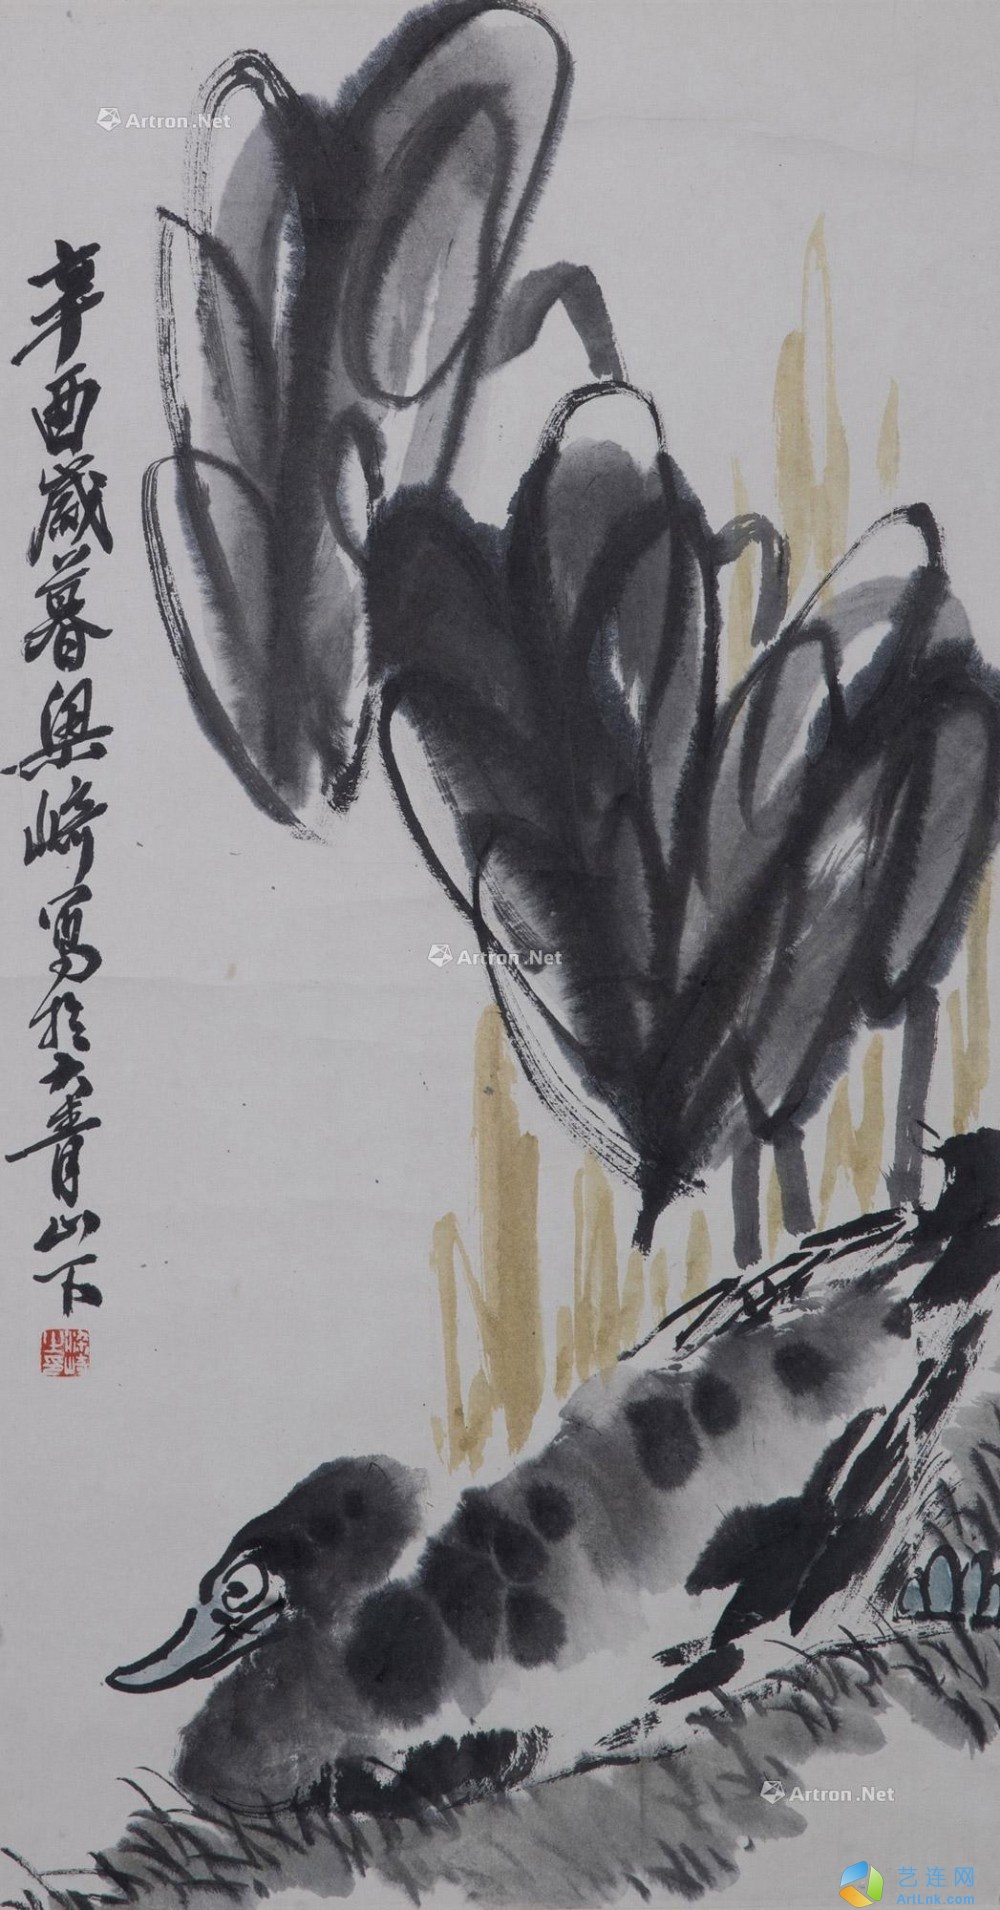 Artron.Net
辛酉歲暮梁崎寫於大青山下
Artron.Net
Artron.Net
艺连网
ArtLnk.com